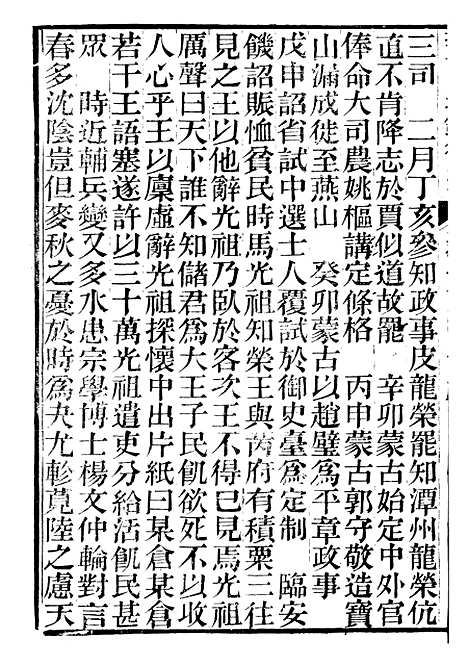 三司　二月丁亥參知政事皮龍榮罷知潭州龍榮伉
直不肯降志於賈似道故罷　辛卯蒙古始定中外官
俸命大司農姚樞講定條格　丙申蒙古郭守敬造寶
山漏成徙至燕山　癸卯蒙古以趙璧爲平章政事
戊申詔省試中選士人覆試於御史臺爲定制　臨安
饑詔賑恤貧民時馬光祖知榮王與芮府有積粟三往
見之王以他辭光祖乃臥於客次王不得已見焉光祖
厲聲曰天下誰不知儲君爲大王子民飢欲死不以收
人心乎王以廩虛辭光祖探懷中出片紙曰某倉某倉
若干王語塞遂許以三十萬光祖遣吏分給活飢民甚
眾　時近輔兵變又多水患宗學博士楊文仲輪對言
春多沈陰豈但麥秋之憂於時爲夬尤軫莧陸之慮天